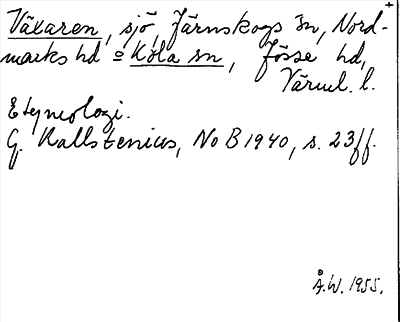 Växaren, sjö, Järnskogs sn, Nord-
marks hd o Köla sn, Jösse hd,
Värml. l.
Etymologi.
G. Kallstenius, NoB 1940, s. 23ff.
Å.W. 1955.